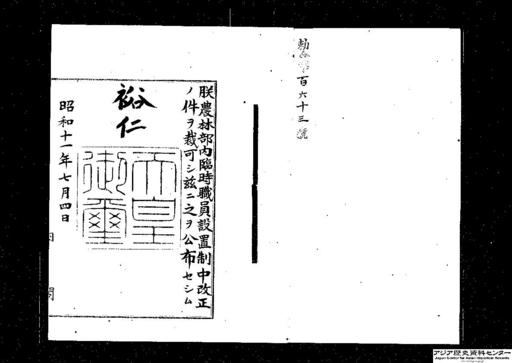 勅令第百六十三號
朕農林部內臨時職員設置制中改正
ノ件ヲ裁可シ茲ニ之ヲ公布セシム
裕仁
天皇
御璽
昭和十一年七月四日
内閣
アジア歴史資料センター
Japan Center for Asian Historical Records